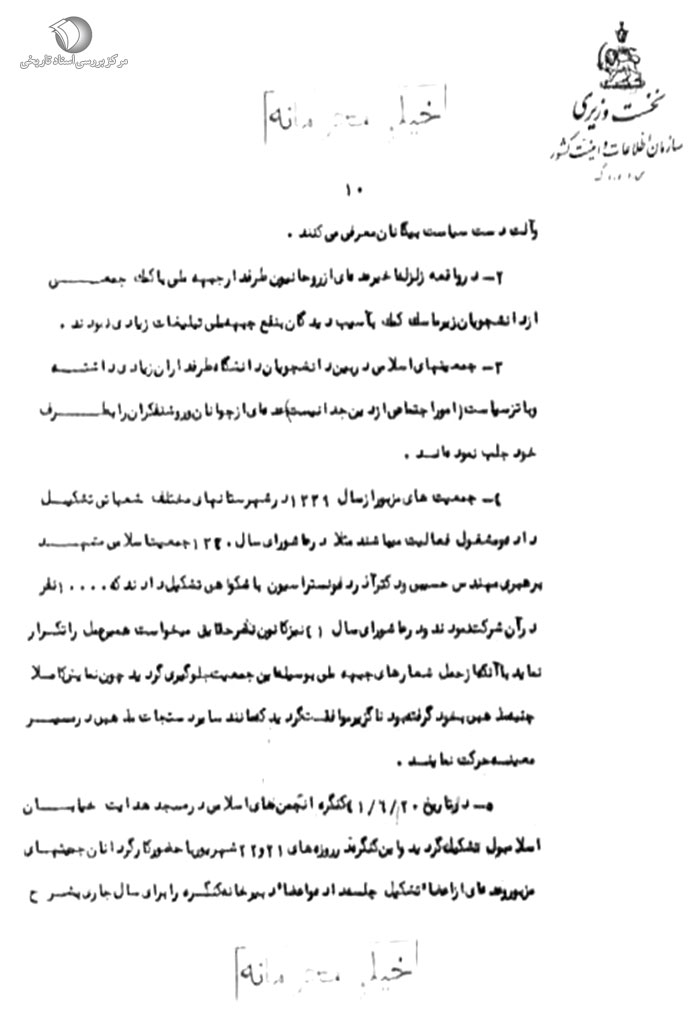 مرکز بررسی اسناد تاریخی
نخست وزیری
سازمان اطلاعات و امنیت کشور
خیلی محرمانه
۱۰
وآلت دست سیاست بیگانان معرفی می کنند .
۲ـ در واقعه زلزله اخیر عده ای از روحانیون طرفدار جبهه ملی با کمک جمعــــی
از دانشجویان زیر ماسک کمک به آسیب دیدگان بنفع جبهه ملی تبلیغات زیادی نمودند .
۳ـ جمعیتهای اسلامی در بین دانشجویان دانشگاه طرفداران زیادی داشتــه
وبا تز سیاست (امور اجتماعی از دین جدا نیست) عده ای از جوانان وروشنفکران را بطـــرف
خود جلب نموده انـد .
٤ـ جمعیت های مزبور از سال ۱۳۳۹ در شهرستانهای مختلف شعباتی تشکیــل
داده ومشغول فعالیت میباشند مثلا در عاشورای سال ۱۳٤۰ جمعیت اسلامی مشهــد
برهبری مهندس حسیبی ودکتر آذر دمونستراسیون باشکوهی تشکیل دادند که ۱۰۰۰۰ نفر
در آن شرکت نمودند ودر عاشورای سال ٤۱ نیز کانون نشر حقایق میخواست همین عمل را تکرار
نماید با آنکه از حمل شعارهای جبهه ملی بوسیله این جمعیت جلوگیری گردید چون نمایش کاملا
جنبه مذهبی بخود گرفته بود ناگزیر موافقت گردید که مانند سایر دستجات مذهبی در مسیــر
معینــه حرکت نماینـد .
٥ـ در تاریخ ٤۱/٦/۲۰ کنگره انجمن های اسلامی در مسجد هدایت خیابــان
اسلامبول تشکیل گردید و این کنگره در روزهای ۲۱ و ۲۲ شهریور با حضور کارگردانان جمعیتهــای
مزبور وعده ای از اعضاء تشکیل جلسه داده واعضاء دبیرخانه کنگــره را برای سال جاری بشــرح
خیلی محرمانه